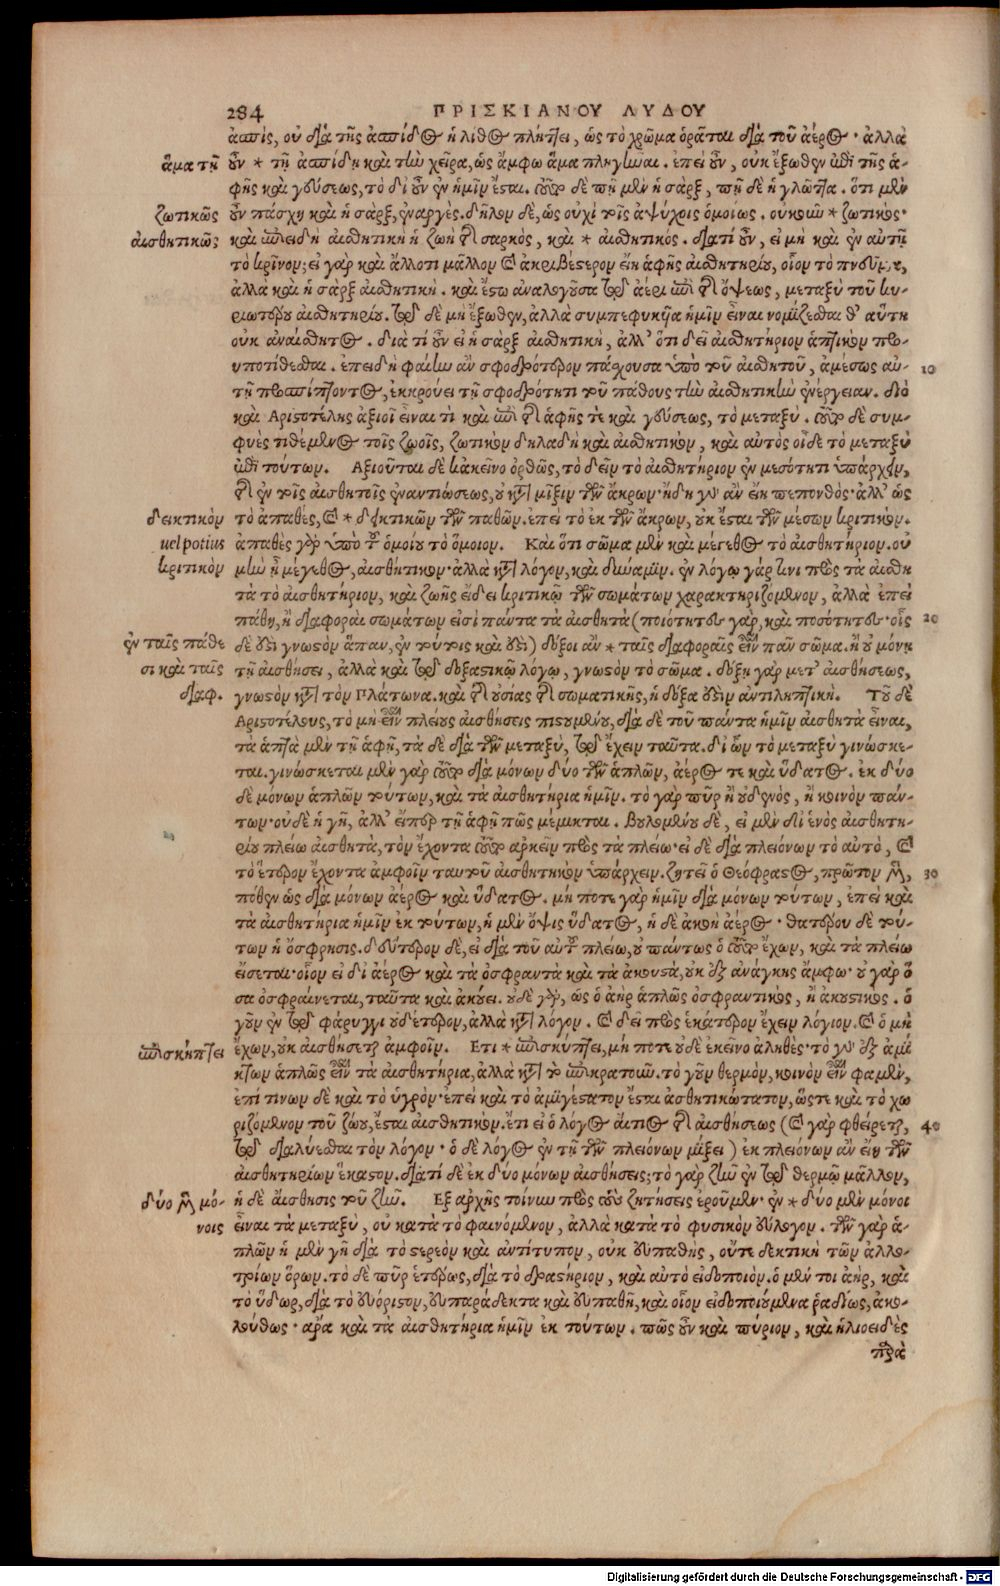 284 ΠΡΙΣΚΙΑΝΟΥ ΛΥΔΟΥ
ἀσπίς, οὐ διὰ τῆς ἀσπίδος ἡ λίθος πλήττει, ὡς τὸ χρῶμα ὁρᾶται διὰ τοῦ ἀέρος· ἀλλὰ
ἅμα τῇ
οὖν * τῇ ἀσπίδι καὶ τὴν χεῖρα, ὡς ἄμφω ἅμα πληγῆναι. ἐπεὶ οὖν, οὐκ ἔξωθεν ἐπὶ τῆς ἁ-
φῆς καὶ γεύσεως, τὸ δι' οὗ ἐν ἡμῖν ἔσται. νῦν δὲ πῆ μὲν ἡ σὰρξ, πῆ δὲ ἡ γλῶττα. ὅτι μὲν
ζωτικῶς
οὖν πάσχει καὶ ἡ σὰρξ, ἐναργές. δῆλον δὲ, ὡς οὐχὶ τοῖς ἀψύχοις ὁμοίως. οὐκοῦν * ζωτικός·
αἰσθητικῶς
καὶ ἐπειδὴ αἰσθητικὴ ἡ ζωὴ τῆς σαρκὸς, καὶ * αἰσθητικός. διατί οὖν, εἰ μὴ καὶ ἐν αὐτῇ
τὸ κρῖνον; εἰ γὰρ καὶ ἄλλο τι μᾶλλον καὶ ἀκριβέστερον εἴη ἁφῆς αἰσθητήριον, οἷον τὸ πνεῦμα,
ἀλλὰ καὶ ἡ σὰρξ αἰσθητική. καὶ ἔστω ἀναλογοῦσα τῷ ἀέρι ἐπὶ τῆς ὄψεως, μεταξὺ τοῦ κυ-
ριωτέρου αἰσθητηρίου. τῷ δὲ μὴ ἔξωθεν, ἀλλὰ συμπεφυκυῖα ἡμῖν εἶναι νομίζεσθαι δ' αὕτη
οὐκ ἀναίσθητος. διὰ τί οὖν εἰ ἡ σὰρξ αἰσθητικὴ, ἀλλ' ὅτι δεῖ αἰσθητήριον ἁπτικὸν προ-
υποτίθεσθαι. ἐπειδὴ φαίην ἂν σφοδρότερον πάσχουσα ὑπὸ τοῦ αἰσθητοῦ, ἀμέσως αὐ-
10
τῇ προσπίπτοντος, ἐκκρούει τῇ σφοδρότητι τοῦ πάθους τὴν αἰσθητικὴν ἐνέργειαν. διὸ
καὶ Ἀριστοτέλης ἀξιοῖ εἶναι τὶ καὶ ἐπὶ τῆς ἁφῆς τε καὶ γεύσεως, τὸ μεταξύ. νῦν δὲ συμ-
φυὲς τιθέμενος τοῖς ζώοις, ζωτικὸν δηλαδὴ καὶ αἰσθητικὸν, καὶ αὐτὸς οἶδε τὸ μεταξὺ
ἐπὶ τούτων. Ἀξιοῦται δὲ κἀκεῖνο ὀρθῶς, τὸ δεῖν τὸ αἰσθητήριον ἐν μεσότητι ὑπάρχειν,
τῆς ἐν τοῖς αἰσθητοῖς ἐναντιώσεως, οὐ κατὰ μῖξιν τῶν ἄκρων· ἤδη γὰρ ἂν εἴη πεπονθὸς· ἀλλ' ὡς
δεικτικὸν
τὸ ἀπαθὲς, καὶ * δηκτικῶν τῶν παθῶν. ἐπεὶ τὸ ἐκ τῶν ἄκρων, οὐκ ἔσται τῶν μέσων κριτικόν.
uel potius
ἀπαθὲς γὰρ ὑπὸ τοῦ ὁμοίου τὸ ὅμοιον. Καὶ ὅτι σῶμα μὲν καὶ μέγεθος τὸ αἰσθητήριον. οὐ
κριτικὸν
μὴν ᾗ μέγεθος, αἰσθητικὸν· ἀλλὰ κατὰ λόγον, καὶ δύναμιν. ἐν λόγῳ γάρ τινι πρὸς τὰ αἰσθη
τὰ τὸ αἰσθητήριον, καὶ ζωῆς εἴδει κριτικῷ τῶν σωμάτων χαρακτηριζόμενον, ἀλλὰ ἐπεὶ
πάθη, ἢ διαφοραὶ σωμάτων εἰσὶ πάντα τὰ αἰσθητὰ (ποιότητες γὰρ, καὶ ποσότητες· οἷς
20
ἐν ταῖς πάθε
δὲ οὐδὲν γνωστὸν ἅπαν, ἐν τούτοις καὶ οὐδὲν) δόξοι ἂν * ταῖς διαφοραῖς εἶναι πᾶν σῶμα. ἢ οὐ μόνη
σι καὶ ταῖς
τῇ αἰσθήσει, ἀλλὰ καὶ τῷ δοξαστικῷ λόγῳ, γνωστὸν τὸ σῶμα. δόξῃ γὰρ μετ' αἰσθήσεως,
διαφ.
γνωστὸν κατὰ τὸν Πλάτωνα. καὶ τῆς οὐσίας τῆς σωματικῆς, ἡ δόξα ἐστὶν ἀντιληπτική. Τοῦ δὲ
Ἀριστοτέλους, τὸ μὴ εἶναι πλείους αἰσθήσεις πιστουμένου, διὰ δὲ τοῦ πάντα ἡμῖν αἰσθητὰ εἶναι,
τὰ ἁπτὰ μὲν τῇ ἁφῇ, τὰ δὲ διὰ τῶν μεταξὺ, τῷ ἔχειν ταῦτα. δι' ὧν τὸ μεταξὺ γινώσκε-
ται. γινώσκεται μὲν γὰρ νῦν διὰ μόνων δύο τῶν ἁπλῶν, ἀέρος τε καὶ ὕδατος. ἐκ δύο
δὲ μόνων ἁπλῶν τούτων, καὶ τὰ αἰσθητήρια ἡμῖν. τὸ γὰρ πῦρ ἢ οὐδενὸς, ἢ κοινὸν πάν-
των· οὐδὲ ἡ γῆ, ἀλλ' εἴπερ τῇ ἁφῇ πῶς μέμικται. Βουλομένου δὲ, εἰ μὲν δι' ἑνὸς αἰσθητη-
ρίου πλείω αἰσθητὰ, τὸν ἔχοντα νῦν ἀρκεῖν πρὸς τὰ πλείω· εἰ δὲ διὰ πλειόνων τὸ αὐτὸ, καὶ
τὸ ἕτερον ἔχοντα ἀμφοῖν ταυτοῦ αἰσθητικὸν ὑπάρχειν. ζητεῖ ὁ Θεόφραστος, πρῶτον μὲν,
30
πόθεν ὡς διὰ μόνων ἀέρος καὶ ὕδατος. μή ποτε γὰρ ἡμῖν διὰ μόνων τούτων, ἐπεὶ καὶ
τὰ αἰσθητήρια ἡμῖν ἐκ τούτων, ἡ μὲν ὄψις ὕδατος, ἡ δὲ ἀκοὴ ἀέρος· θατέρου δὲ τού-
των ἡ ὄσφρησις. δεύτερον δὲ, εἰ διὰ τοῦ αὐτοῦ πλείω, οὐ πάντως ὁ νῦν ἔχων, καὶ τὰ πλείω
εἴσεται· οἷον εἰ δι' ἀέρος καὶ τὰ ὀσφραντὰ καὶ τὰ ἀκουστὰ, οὐκ ἐξ ἀνάγκης ἄμφω· οὐ γὰρ ὅ
σα ὀσφραίνεται, ταῦτα καὶ ἀκούει. οὐδὲ γὰρ, ὡς ὁ ἀὴρ ἁπλῶς ὀσφραντικὸς, ἢ ἀκουστικός. ὁ
γοῦν ἐν τῷ φάρυγγι οὐδέτερον, ἀλλὰ κατὰ λόγον. καὶ δεῖ πρὸς ἑκάτερον ἔχειν λόγιον. καὶ ὁ μὴ
ἐπισκήπτει
ἔχων, οὐκ αἰσθήσεται ἀμφοῖν. Ἔτι * ἐπισκύπτει, μή ποτε οὐδὲ ἐκεῖνο ἀληθὲς· τὸ γὰρ ἐξ ἀμί
κτων ἁπλῶς εἶναι τὰ αἰσθητήρια, ἀλλὰ κατὰ τὸ ἐπικρατοῦν. τὸ γοῦν θερμὸν, κοινὸν εἶναι φαμὲν,
ἐπί τινων δὲ καὶ τὸ ὑγρὸν· ἐπεὶ καὶ τὸ ἀμιγέστατον ἔσται ἀσθητικώτατον, ὥστε καὶ τὸ χω
ριζόμενον τοῦ ζώου, ἔσται αἰσθητικόν. ἔτι εἰ ὁ λόγος αἴτιος τῆς αἰσθήσεως (καὶ γὰρ φθείρεται,
40
τῷ διαλύεσθαι τὸν λόγον· ὁ δὲ λόγος ἐν τῇ τῶν πλειόνων μίξει) ἐκ πλειόνων ἂν εἴη τῶν
αἰσθητηρίων ἕκαστον. διατί δὲ ἐκ δύο μόνων αἰσθήσεις; τὸ γὰρ ζῆν ἐν τῷ θερμῷ μᾶλλον,
δύο μὲν μό-
ἡ δὲ αἴσθησις τοῦ ζῆν. Ἐξ ἀρχῆς τοίνυν πρὸς τὰς ζητήσεις ἐροῦμεν· ἐν * δύο μὲν μόνοι
νοις
εἶναι τὰ μεταξὺ, οὐ κατὰ τὸ φαινόμενον, ἀλλὰ κατὰ τὸ φυσικὸν εὔλογον. τῶν γὰρ ἁ-
πλῶν ἡ μὲν γῆ διὰ τὸ στερεὸν καὶ ἀντίτυπον, οὐκ εὐπαθὴς, οὔτε δεκτικὴ τῶν ἀλλο-
τρίων ὅρων. τὸ δὲ πῦρ ἑτέρως, διὰ τὸ δραστήριον, καὶ αὐτὸ εἰδοποιόν. ὁ μέν τοι ἀὴρ, καὶ
τὸ ὕδωρ, διὰ τὸ εὐόριστον, εὐπαράδεκτα καὶ εὐπαθῆ, καὶ οἷον εἰδοποιούμενα ῥᾳδίως, ἀκο-
λούθως· ἄρα καὶ τὰ αἰσθητήρια ἡμῖν ἐκ τούτων. πῶς οὖν καὶ πύριον, καὶ ἡλιοειδὲς
παρὰ
Digitalisierung gefördert durch die Deutsche Forschungsgemeinschaft - DFG